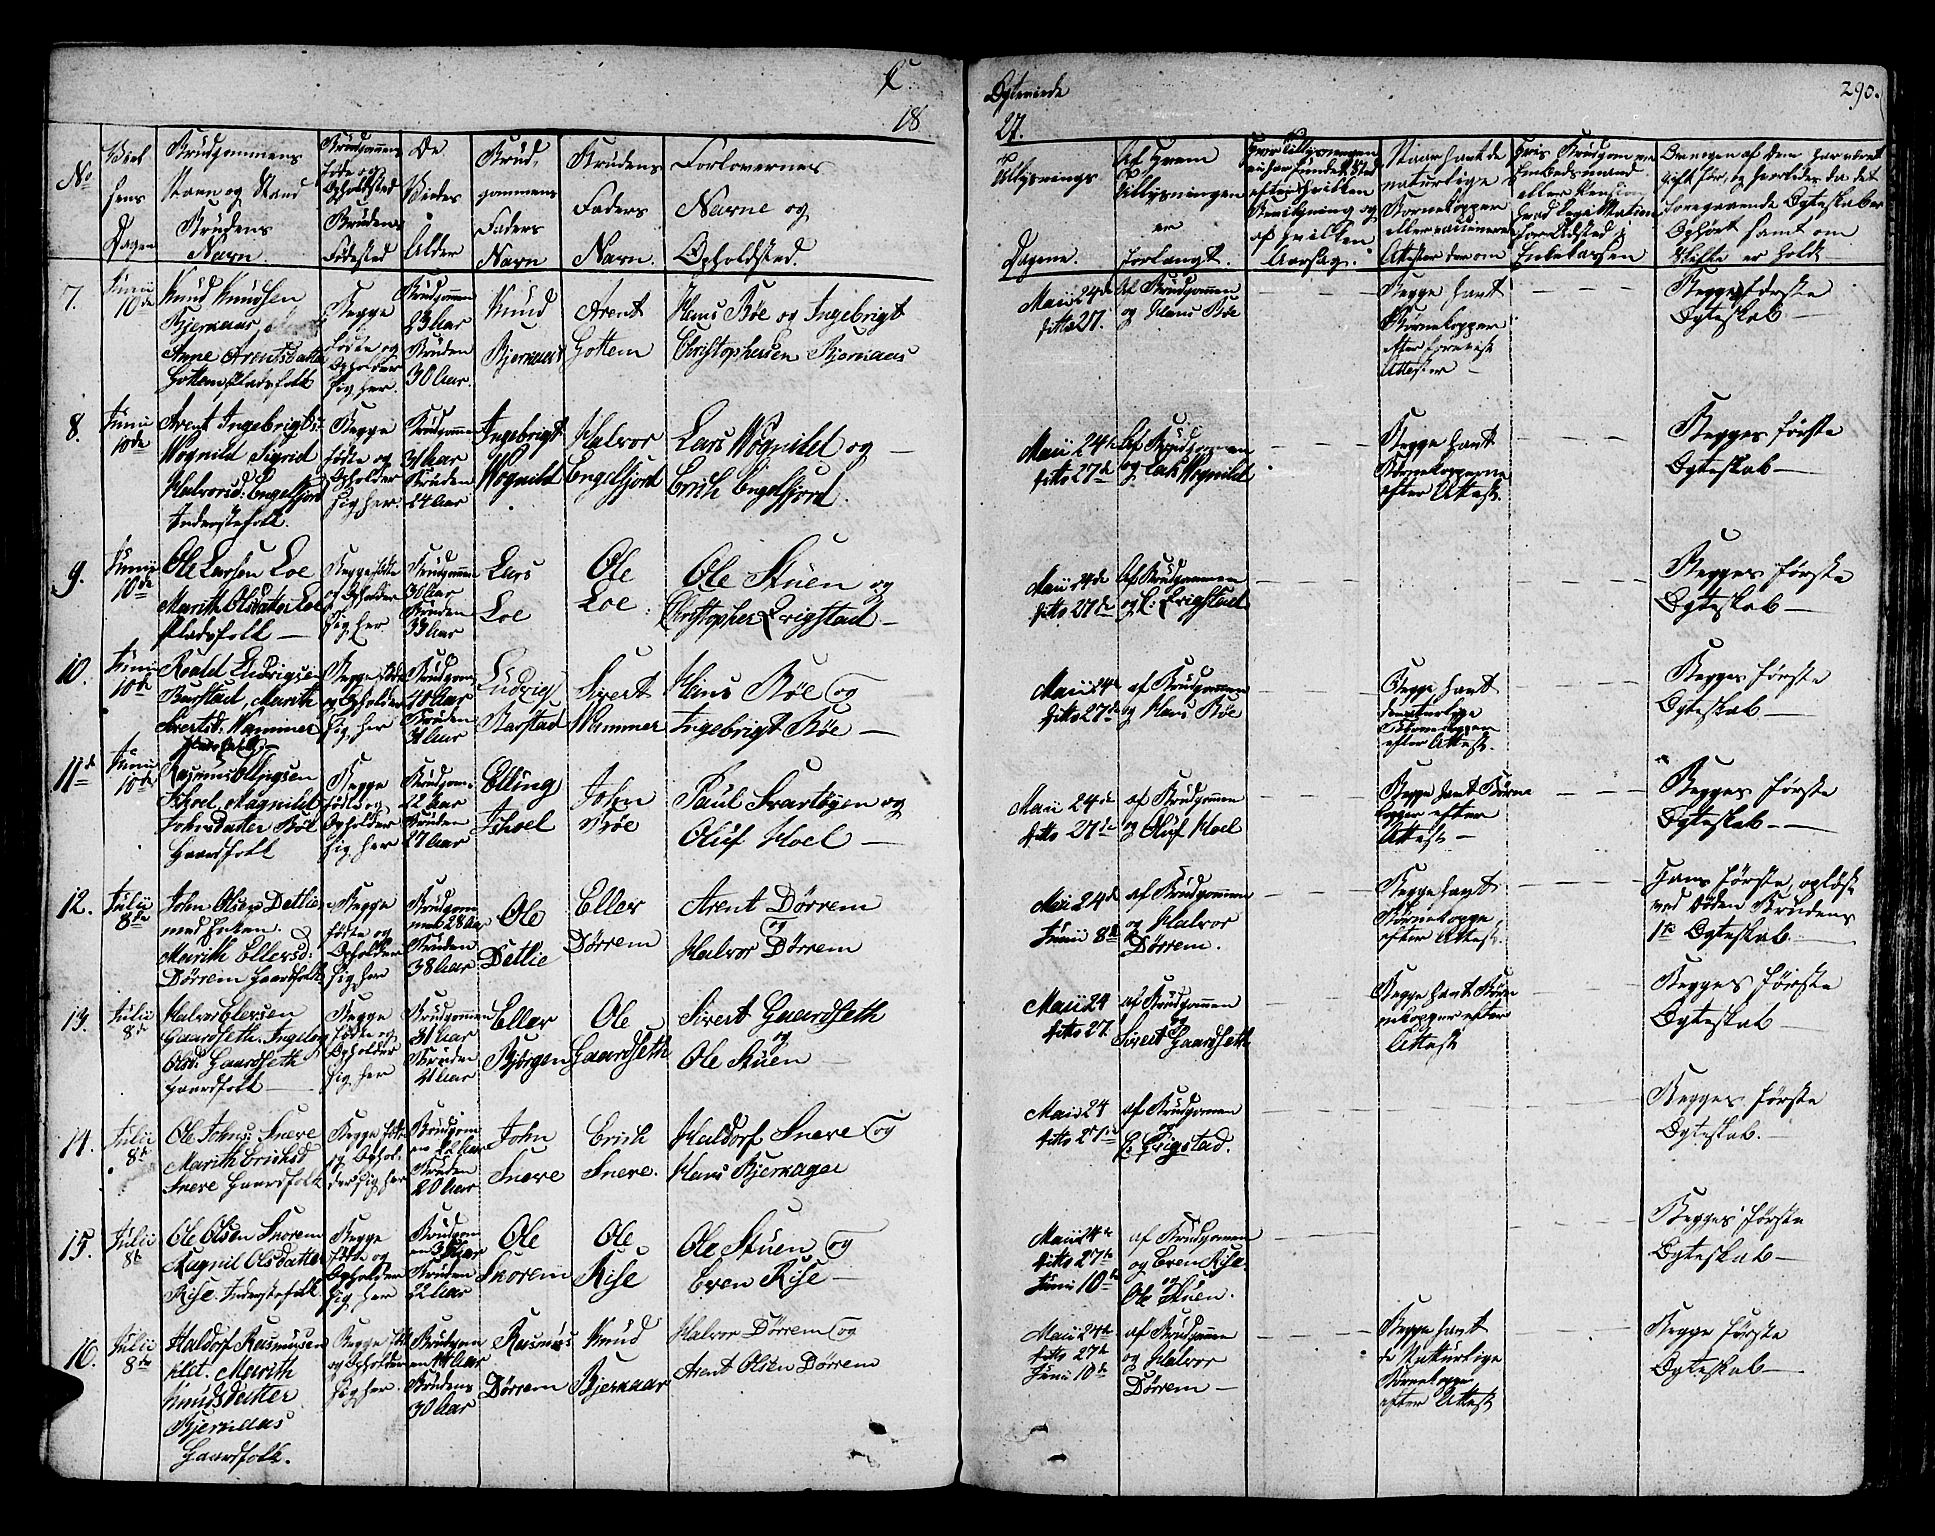 Egteviede
290.
18
27.
No
Viel
sens
Dagen
Brudgommens
Navn og Stand
Brudens
Navn.
Brudgommens
føde og
Opholdsted
Brudens
Fødested
De
Viedes
Alder
Brud,
gommens
Faders
Navn
Brudens
Faders
Navn.
Forlovernes
Navne og
Opholdsted.
Tillysnings
Dagene.
Af Hvem
Tillysningen
er
forlangt.
7.
Junii
10de
Knud Knudsen
Bjernaas,
Anne Arentsdatter
Gottem pladsfolk
Begge
fødte og
opholder
sig her.
Brudgommen
23 Aar
Bruden
30 Aar.
Knud
Bjernaas
Arent
Gottem
Hans Böe og Ingebrigt
Christophersen Bjernaas
Maii 24de
ditto 27.
Af Brudgommen
og Hans Böe
Begge havt
Børnekopper
efter foreviste
Attester –
Begges første
Egteskab –
8.
Junii
10de
Arent Ingebrigts:
Wognild Sigrid
Halvorsd: Engelsfjord
Inderstefolk.
Begge
fødte og
opholder
sig her.
Brudgommen
31 Aar
Bruden
24 Aar
Ingebrigt
Wognild
Halvor
Engelsfjord
Lars Wognild og –
Erich Engelsfjord.
Maii 24de
ditto 27de
Af Brudgommen
og Lars Wognild
Begge havt
Børnekopperne
efter Attest.
Begges første
Egteskab –
9.
Junii
10de
Ole Larsen Loe
Marith Olsdatter Loe
pladsfolk –
Begge fødte
og opholder
sig her
Brudgommen
30 Aar
Bruden
33 Aar
Lars
Loe
Ole
Loe.
Ole Stuen og
Christopher Erigstad –
Maii 24de
ditto 27de
Af Brudgommen
og C: Erigstad
Begges første
Egteskab –
10.
Junii
10de
Roald Ludvigsen
Barstad, Marith
Sivertsd: Wammer
Begge fødte
og opholder
sig her
Brudgom:
40 Aar
Bruden
31 Aar
Ludvig
Barstad
Sivert
Wammer
Hans Böe og
Ingebrigt Böe –
Maii 24de
ditto 27de
af Brudgommen
og Hans Böe
Begge havt
de naturlige
Børnekopper
efter Attest.
Begges første
Egteskab –
11te
Junii
10de
Rasmus Ellingsen
Schoel, Magnild
Johnsdatter Böe
Gaardfolk
Begge
fødte og
opholder
sig her
Brudgom:
22 Aar
Bruden
27 Aar
Elling
Schoel
John
Böe
Paul Svartöyen og
Oluf Hoel –
Maii 24de
ditto 27de
af Brudgommen
og Oluf Hoel
Begge havt Børne
kopper efter
Attest –
Begges første
Egteskab –
12.
Julii
8de
John Olsen Detlie
med Enken
Marith Ellersd:
Dörrem Gaardfolk
Begge
fødte og
opholder
sig her
Brudgom
men 28 Aar
Bruden
38 Aar
Ole
Detlie
Eller
Dörrem
Arent Dörrem
og
Halvor Dörrem
Maii 24de
Junii 8de
af Brudgommen
og Halvor
Dörrem.
Begge havt
Børnekopper
efter Attest.
Hans første, opløst
ved døden Brudens
1te Egteskab –
13.
Julii
8de
Halvor Ellersen
Gaardseth. Ingebor
Olsd: Gaardseth
Gaardfolk
Begge
fødte og
opholder
sig her
Brudgommen
31 Aar
Bruden
21 Aar
Eller
Björgen
Ole
Gaardseth
Sivert Gaardseth
og
Ole Stuen –
Maii 24
ditto 27.
af Brudgommen
og
Sivert Gaardseth
Begge havt Børn
ekopper efter
Attest
Begges første
Egteskab –
14.
Julii
8de
Ole Johns: Sneve
Marith Erichsd
Sneve Gaardfolk
Begge født
og ophol-
der sig her
Brudgom
en 22 Aar
Bruden
20 Aar
John
Sneve
Erich
Sneve.
Haldorf Sneve og
Hans Bjernager
Maii 24
ditto 27de
af Brudgommen
og
C: Erigstad.
Begges første
Egteskab. –
15.
Julii
8de
Ole Olsen Snorem
Magnil Olsdatter
Rise. Inderstefolk
Begge
fødte og
opholder
sig her
Brudgom
Bruden
22 Aar
Ole
Snorem
Ole
Rise
Ole Stuen og
Even Rise –
Maii 24de
ditto 27de
Junii 10de
af Brudgommen
og Even Rise.
og
Ole Stuen.
Begges første
Egteskab –
16.
Julii
8de
Haldorf Rasmusen
Klet. Marith
Knudsdatter
Bjernaas
Gaardfolk.
Begge født
og opholder
sig her.
Brudgom
Brudens
30 Aar
Rasmus
Dörrem
Knud
Bjernaas
Halvor Dörrem og
Arent Olsen Dörrem
Maii 24de
ditto 27de
Junii 10de
af Brudgommen
og Halvor
Dörrem –
Begge havt
de Naturlige
Børnekopper
efter Attest
Begge første
Egteskab –